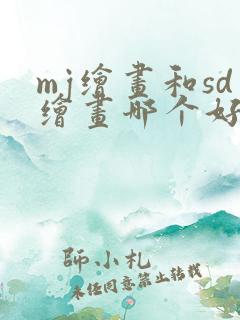 mj繪畫和sd
繪畫哪个好
師小札
未经同意禁止转载